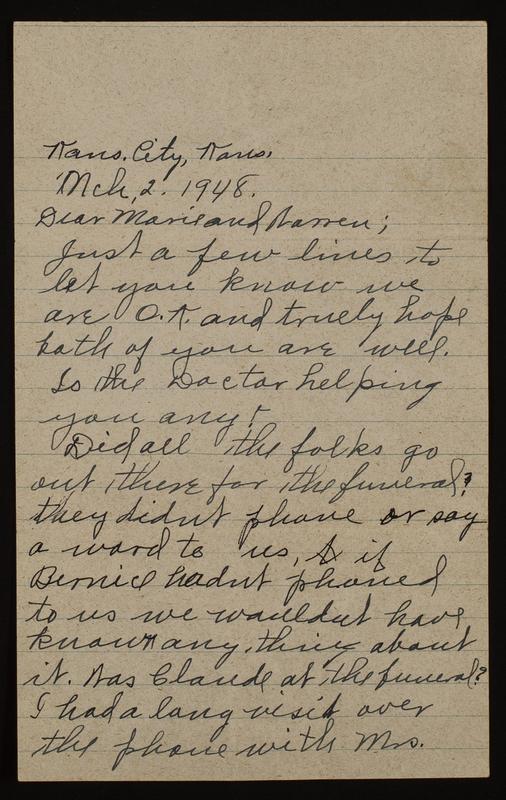 Kans. City, Kans.
Mch, 2. 1948.
Dear Marie and Warren;
Just a few lines to
let you know we
are O.K. and truely hope
both of you are well.
Is the Doctor helping
you any?
Did all the folks go
out there for the funeral?
they didn't phone or say
a word to us, if
Bernice hadnt phoned
to us we wouldnt have
known any thing about
it. Was Claude at the funeral?
I had a long visit over
the phone with Mrs.